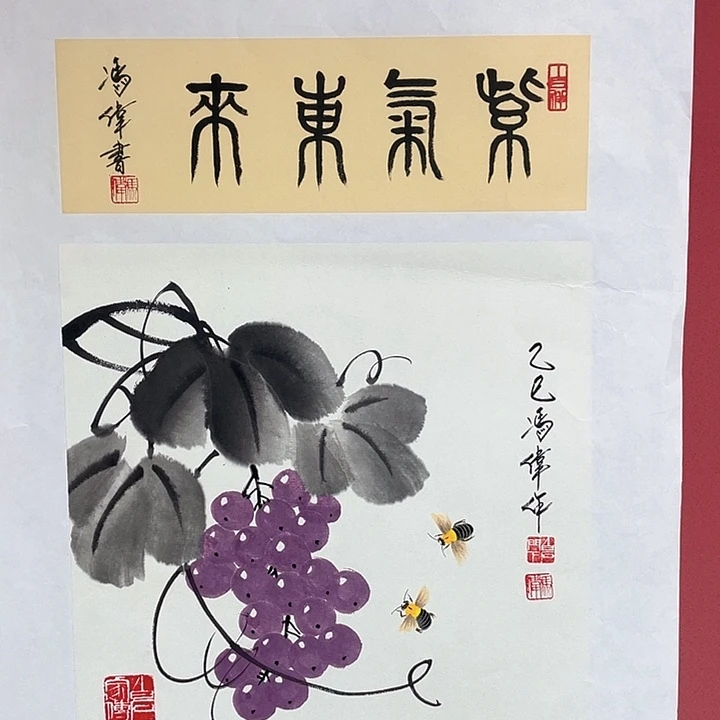 紫氣東來
馮偉書
乙巳馮偉作